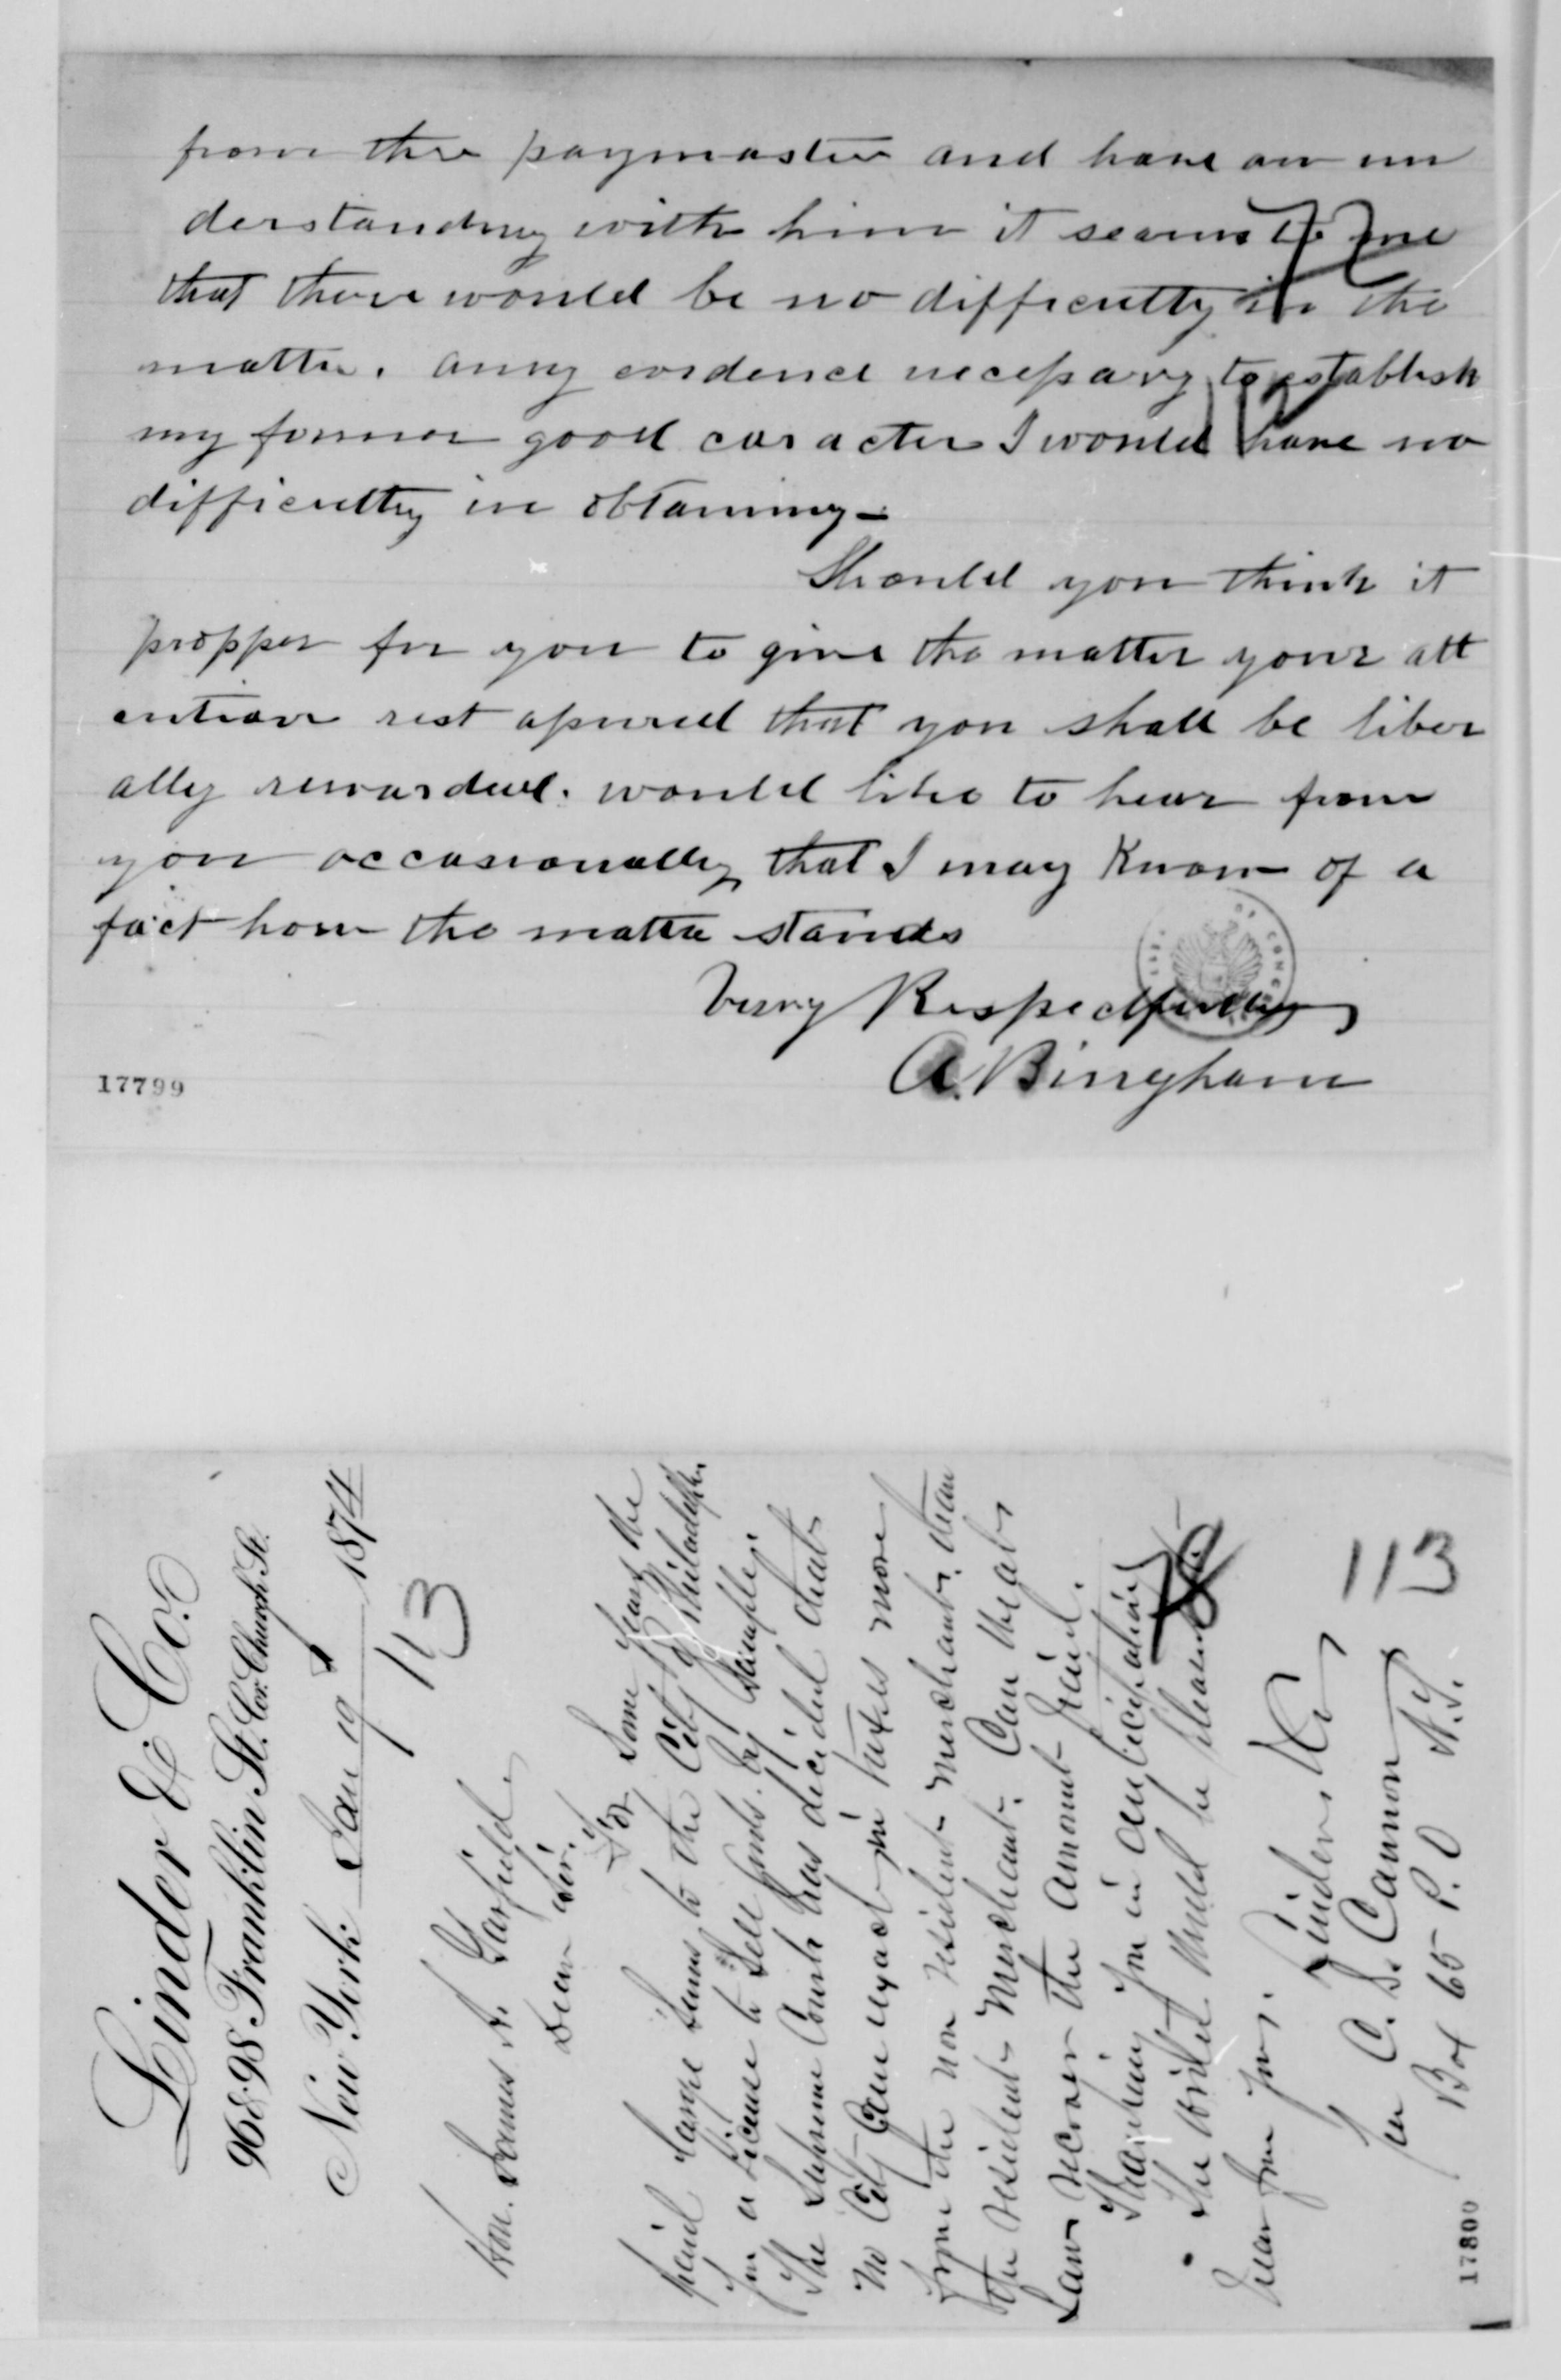 from the paymaster and have an un
derstanding with him it seems to me
that there would be no difficultty in the
matter. anny evidence necessary to establish
my former good caracter I would have no
difficultty in obtaining -
Should you think it
propper for you to give the matter your att
ention rest assured that you shall be liber
ally rewarded. would like to hear from
you occasionally that I may Know of a
fact how the matter stands
Verry Respectfully
A. Bingham
17799
Linder & Co.
96 & 98 Franklin St. Cor. Church St.
New York Jan 19 1874
113
Hon. James A. Garfield
Dear Sir,
For some years the
paid large sums to the City of Philadelphia
for a license to sell goods by samples.
The Supreme Court has decided that
no City can exact in taxes more
from the non resident merchants than
the resident merchant. Can we at
Law recover the amount paid.
Thanking you in anticipation
The writer would be pleased to
hear from you.
Linder & Co
per C. S. Cannon
Box 65 P.O N.Y.
113
17800